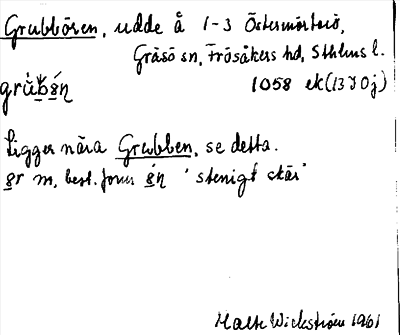 Grubbören, udde å 1-3 Östermörtarö,
Gräsö sn, Frösåkers hd, Sthlms l.
1058 ek (13I0j)
Ligger nära Grubben, se detta.
gr m, best. form 'stenigt skär'
Malte Wickström 1961